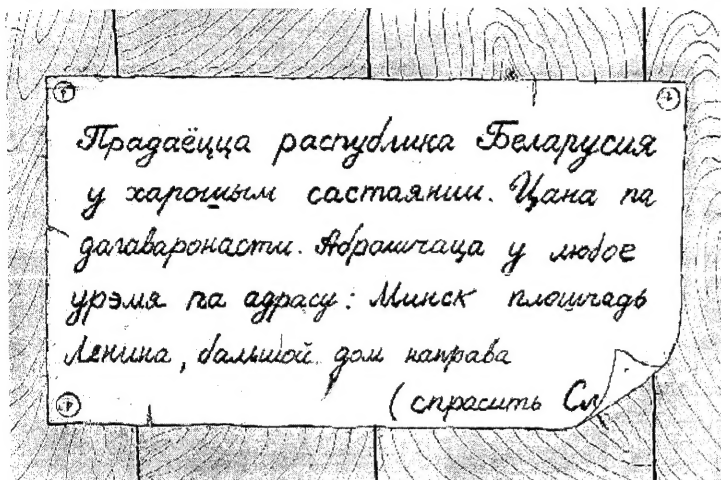 Прадаёцца распублика Беларусия
у харошым састаянии. Цана па
дагаваронасти. Абрашчаца у любое
урэмя па адрасу: Минск плошчадь
Ленина, бальшой дом направа
(спрасить Сл